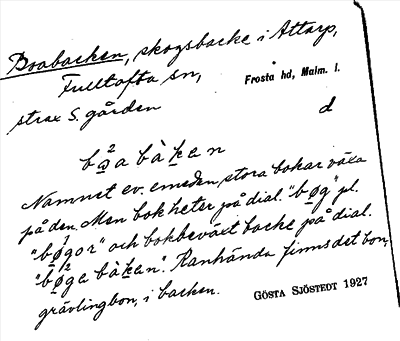 Boabacken, skogsbacke i Attarp,
Fulltofta sn, Frosta hd, Malm. l.
strax S. gården d
Namnet ev. emedan stora bokar växa
på den. Men bok heter på dial. "bøg" pl.
"bøgor" och bokbeväxt backe på dial.
"bøga bàkan". Kanhända finns det bon,
grävlingbon, i backen. GÖSTA SJÖSTEDT 1927